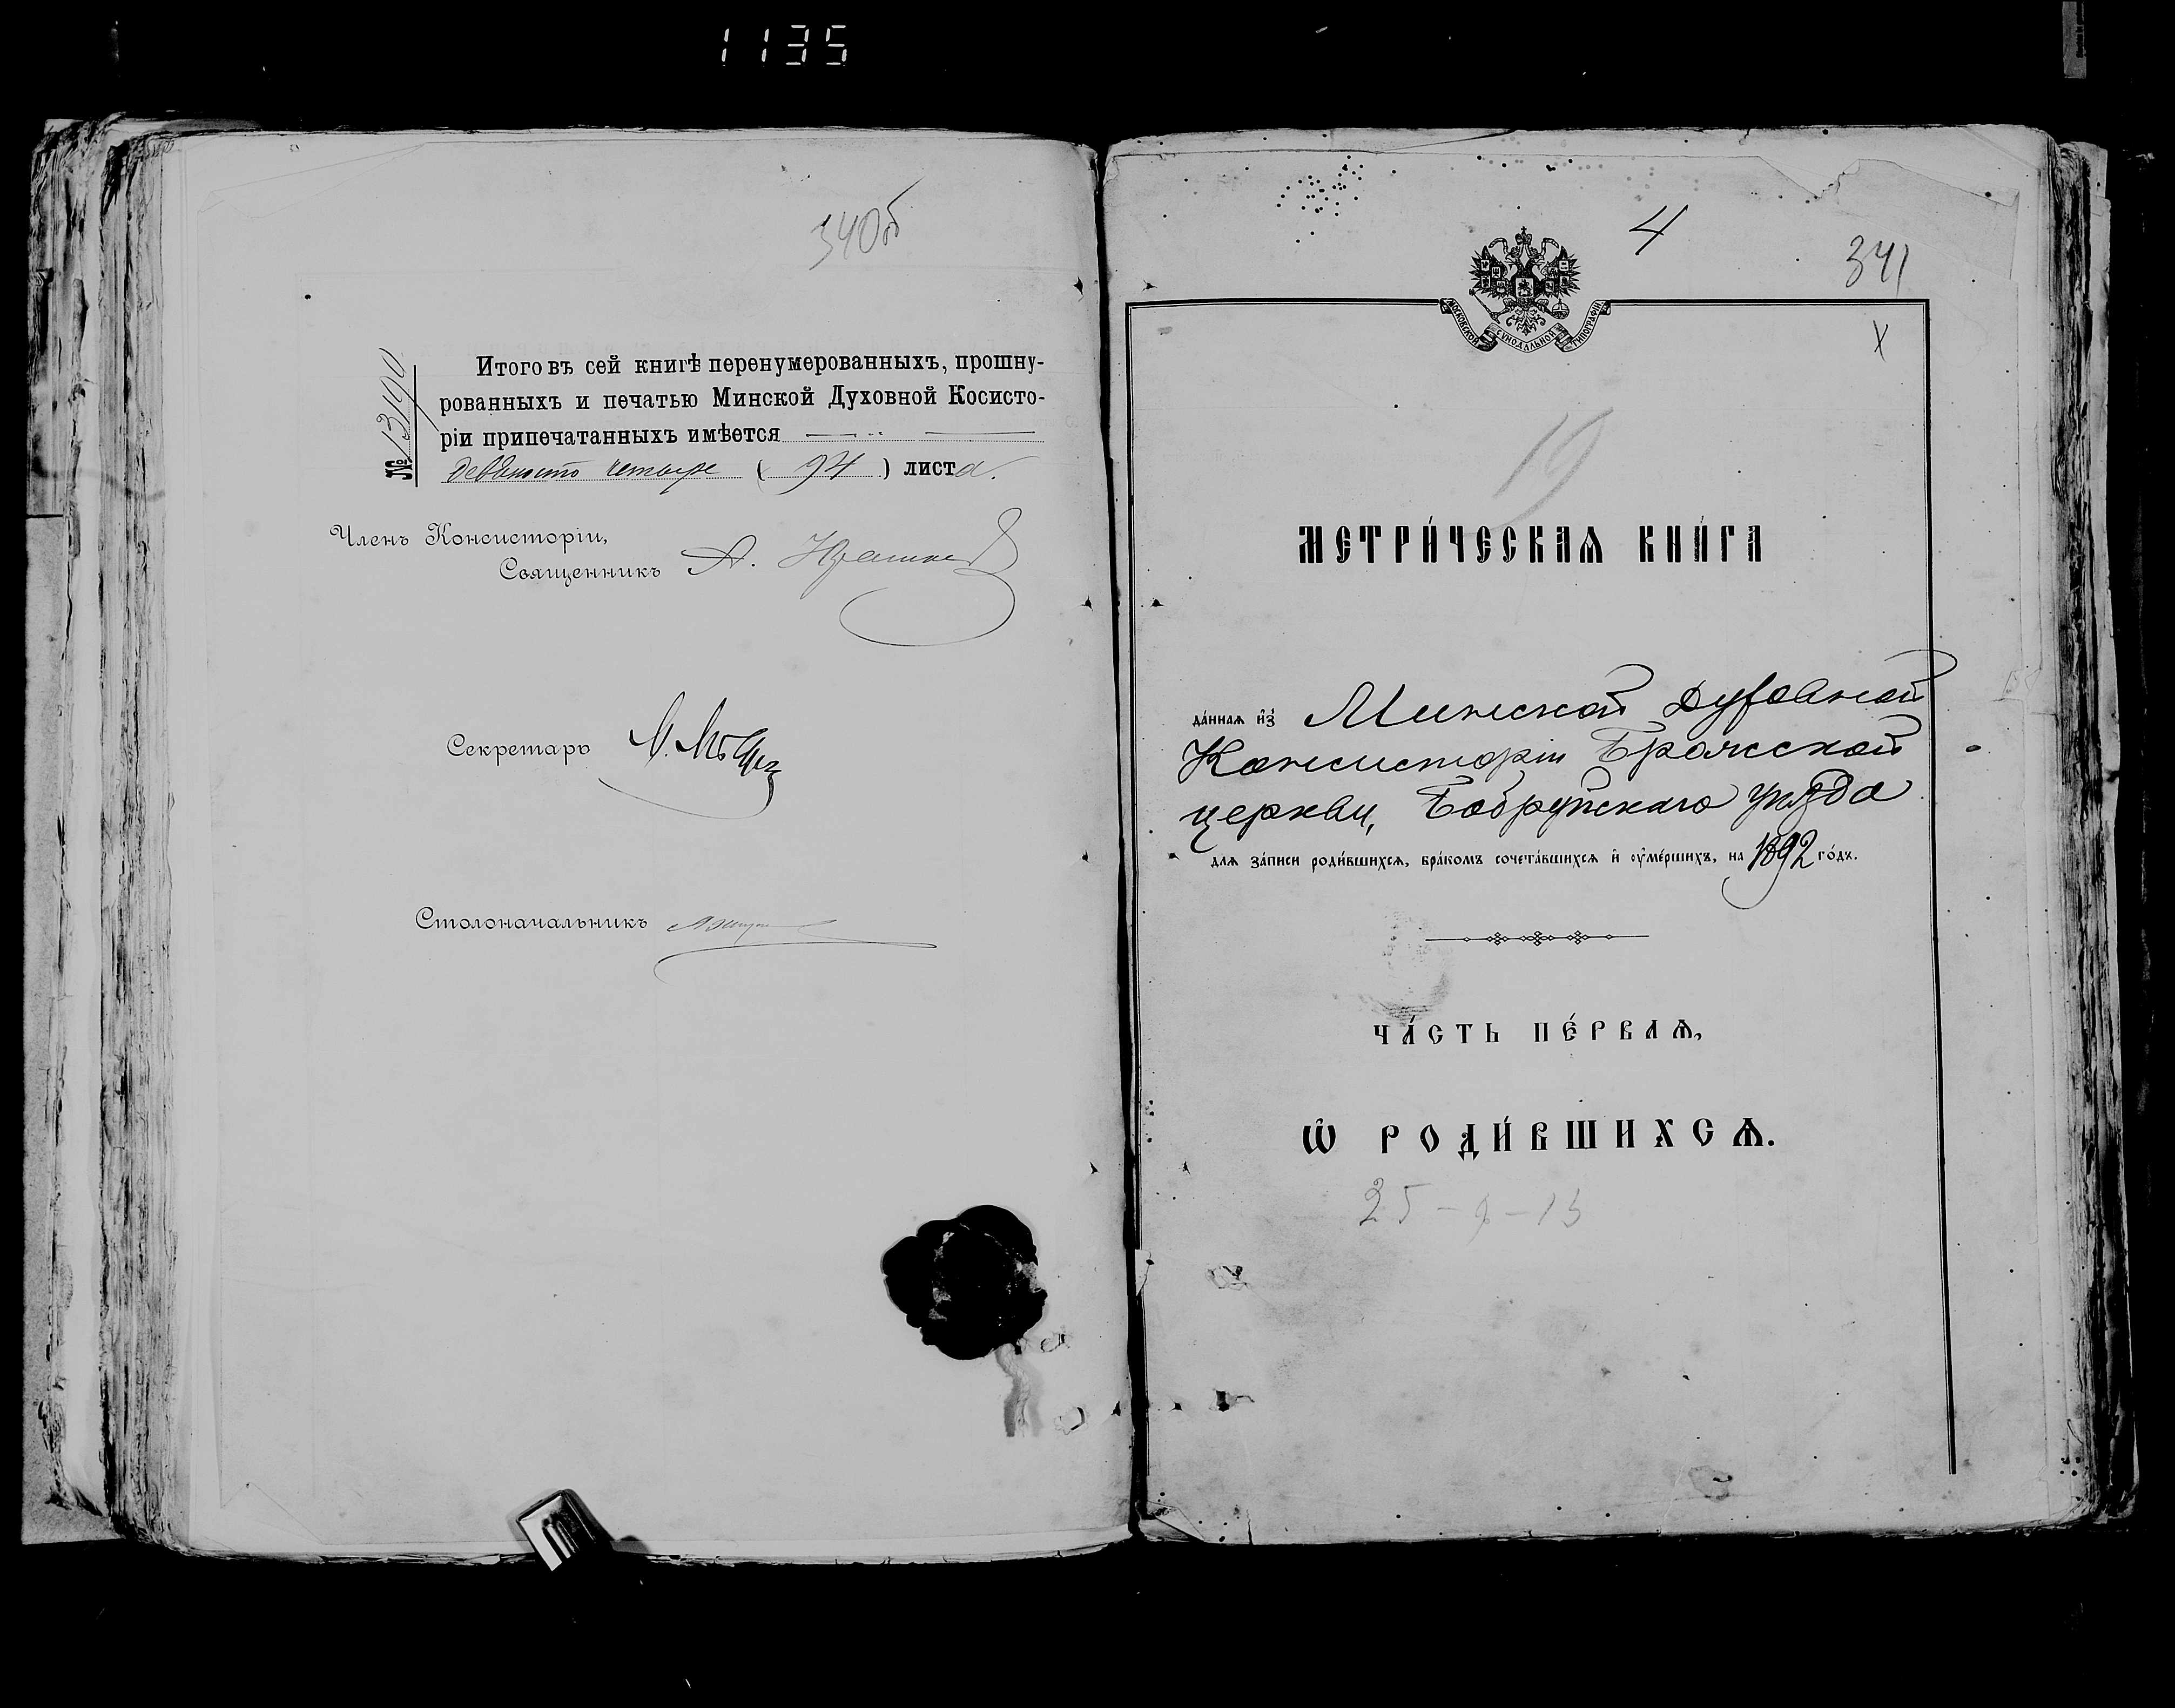 1135
340об
№ 13190
Итого въ сей книгѣ перенумерованныхъ, прошну-
рованныхъ и печатью Минской Духовной Косисто-
ріи припечатанныхъ имѣется
девяносто четыре ( 94 ) листа.
Членъ Консисторіи,
Священникъ А.
Секретарь
Столоначальникъ
4
341
X
МОСКОВСКОЙ СУНОДАЛЬНОЙ ТИПОГРАФІИ
19
МЕТРИ́ЧЕСКАѦ КНИ́ГА
да́ннаѧ и҆з̾ Минской Духовной
Консисторіи Брожской
церкви, Бобруйскаго уѣзда
длѧ за́писи роди́вшихсѧ, бра́комъ сочета́вшихсѧ и҆ ᲂу҆ме́ршихъ, на 1892 го́дъ.
ЧА́СТЬ ПЕ́РВАѦ,
Ѽ РОДИ́ВШИХСѦ.